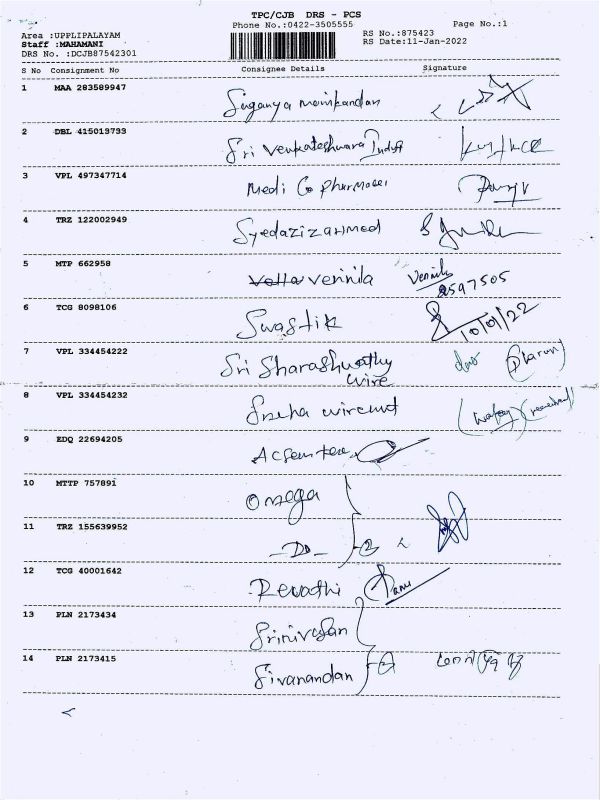 TPC/CJB DRS - PCS
Phone No.:0422-3505555
Page No.:1
Area :UPPLIPALAYAM
Staff :MAHAMANI
DRS No. :DCJB87542301
RS No.:875423
RS Date:11-Jan-2022
S No Consignment No Consignee Details Signature
1 MAA 283589947 Suganya manikandan
2 DBL 415013733 Sri Venkateshwara Indust
3 VPL 497347714 Medi Co pharmacei
4 TRZ 122002949 Syedazizahmed
5 MTP 662958 Vennila Vennila
2597505
6 TCG 8098106 Swastik 10/01/22
7 VPL 334454222 Sri Sharashwathy
wire
8 VPL 334454232 Sneha wirecut
9 EDQ 22694205
10 MTTP 757891 Omega
11 TRZ 155639952 -Do- 2
12 TCG 40001642 Revathi
13 PLN 2173434 Srinivasan
14 PLN 2173415 Sivanandan 2